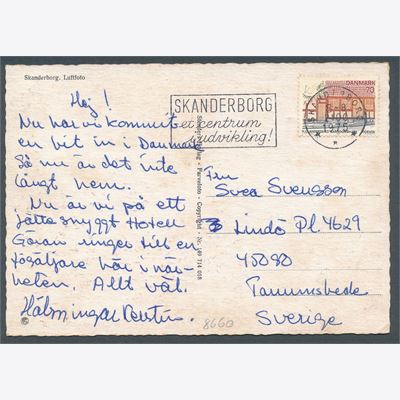 Skanderborg. Luftfoto
Hej!
Nu har vi kommit
en bit in i Danmark
Så nu är det inte
långt hem.
Nu är vi på ett
jätte snyggt Hotell
Göran ringer till en
försäljare här i när-
heten. Allt väl.
Hälsningar Kerstin.
SKANDERBORG
et centrum
i udvikling!
SKANDERBORG
1975
DANMARK
70
Stenders Forlag - Farvefoto - Copyright - Nr. 89 714 058
Fru
Svea Svensson
Lindö Pl. 4629
45080
Tanumshede
Sverige
8660